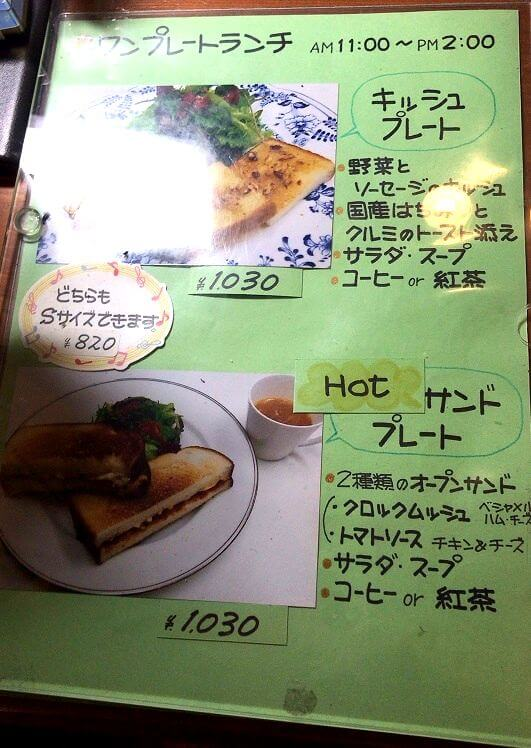 ワンプレートランチ AM 11:00 ~ PM 2:00
キッシュ
プレート
野菜と
ソーセージのキッシュ
国産はちみつと
クルミのトースト添え
サラダ・スープ
コーヒー or 紅茶
¥1,030
どちらも
Sサイズできます
¥820
Hot サンド
プレート
2種類のオープンサンド
・クロックムッシュ ベシャメル
ハム・チーズ
・トマトソース チキン&チーズ
サラダ・スープ
コーヒー or 紅茶
¥1,030